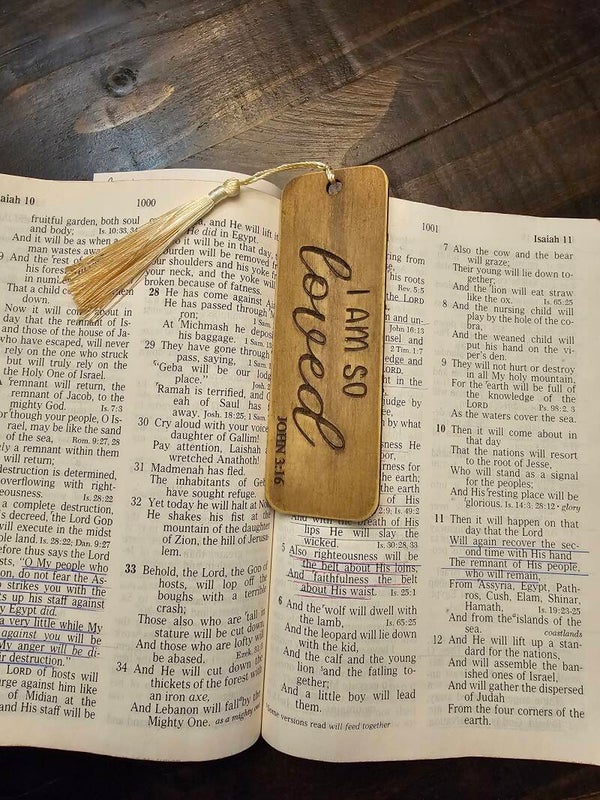 aiah 10
1000
fruitful garden, both soul
and body;
Is. 10:33, 34
And it will be as when a
man wastes away
9 And the rest of
his forest
in
That a child
down.
Now it will come about in
day that the remnant of Is-
and those of the house of Ja-
who have escaped, will never
rely on the one who struck
but will truly rely on
the Holy One of Israel.
A remnant will return, the
remnant of Jacob, to the
mighty God.
Is. 7:3
For though your people, O Is-
rael, may be like the sand
of the sea,
Rom. 9:27, 28
only a remnant within them
will return;
destruction is determined,
overflowing with right-
eousness.
Is. 28:22
a complete destruction,
is decreed, the Lord GOD
will execute in the midst
whole land.
Is. 28:22; Dan. 9:27
Therefore thus says the Lord
"O My people who
in Zion, do not fear the As-
strikes you with the
lifts up his staff against
Egypt did.
a very little while My
against you will be
My anger will be di-
their destruction."
LORD of hosts will
scourge against him like
of Midian at the
And His staff will be
and He will lift it
He did in Egypt.
it will be in that day,
burden will be removed
your shoulders and his yoke
your neck, and the yoke will
broken because of fatness.
28 He has come against
He has passed through
ron;
At Michmash he deposited
his baggage.
1 Sam.
29 They have gone through
pass, saying,
1 Sam.
"Geba will be our lodging
place."
Ramah is terrified, and
eah of Saul has
away.
Josh. 18:25; 1 Sam.
30 Cry aloud with your voice
daughter of Gallim!
Pay attention, Laishah
wretched Anathoth!
31 Madmenah has fled.
The inhabitants of Gebim
have sought refuge.
32 Yet today he will halt at Nob
He shakes his fist at the
mountain of the daughter
of Zion, the hill of Jerusa-
lem.
33 Behold, the Lord, the GOD of
hosts, will lop off the
boughs with a terrible
crash;
Those also who are tall in
stature will be cut down,
And those who are lofty
be abased.
34 And He will cut down the
thickets of the forest with
an iron axe,
And Lebanon will fall by the
Mighty One.
as a mighty
I AM SO
loved
JOHN 3:16
1001
Isaiah 11
spring from
his roots
Rev. 5:5
the LORD
and un-
John 16:13
counsel and
2 Tim. 1:7
and
in the
judge by
righteousness He
fairness for
the earth
the earth
of His
2:9; Is. 49:2
And with the breath of His
lips He will slay the
wicked.
Is. 30:28, 33
5 Also righteousness will be
the belt about His loins,
And faithfulness the belt
about His waist.
Is. 25:1
6 And the wolf will dwell with
the lamb,
Is. 65:25
And the leopard will lie down
with the kid,
And the calf and the young
lion and the fatling to-
gether;
And a little boy will lead
them.
Some versions read will feed together
7 Also the cow and the bear
will graze;
Their young will lie down to-
gether;
And the lion will eat straw
like the ox.
Is. 65:25
8 And the nursing child will
play by the hole of the co-
bra,
And the weaned child will
put his hand on the vi-
per's den.
9 They will not hurt or destroy
in all My holy mountain,
For the earth will be full of
the knowledge of the
LORD
Ps. 98:2, 3
As the waters cover the sea.
10 Then it will come about in
that day
That the nations will resort
to the root of Jesse,
Who will stand as a signal
for the peoples;
And His resting place will be
glorious.
Is. 14:3; 28:12 · glory
11 Then it will happen on that
day that the Lord
Will again recover the sec-
ond time with His hand
The remnant of His people,
who will remain,
From Assyria, Egypt, Path-
ros, Cush, Elam, Shinar,
Hamath,
Is. 19:23-25
And from the islands of the
sea.
coastlands
12 And He will lift up a stan-
dard for the nations,
And will assemble the ban-
ished ones of Israel,
And will gather the dispersed
of Judah
From the four corners of the
earth.